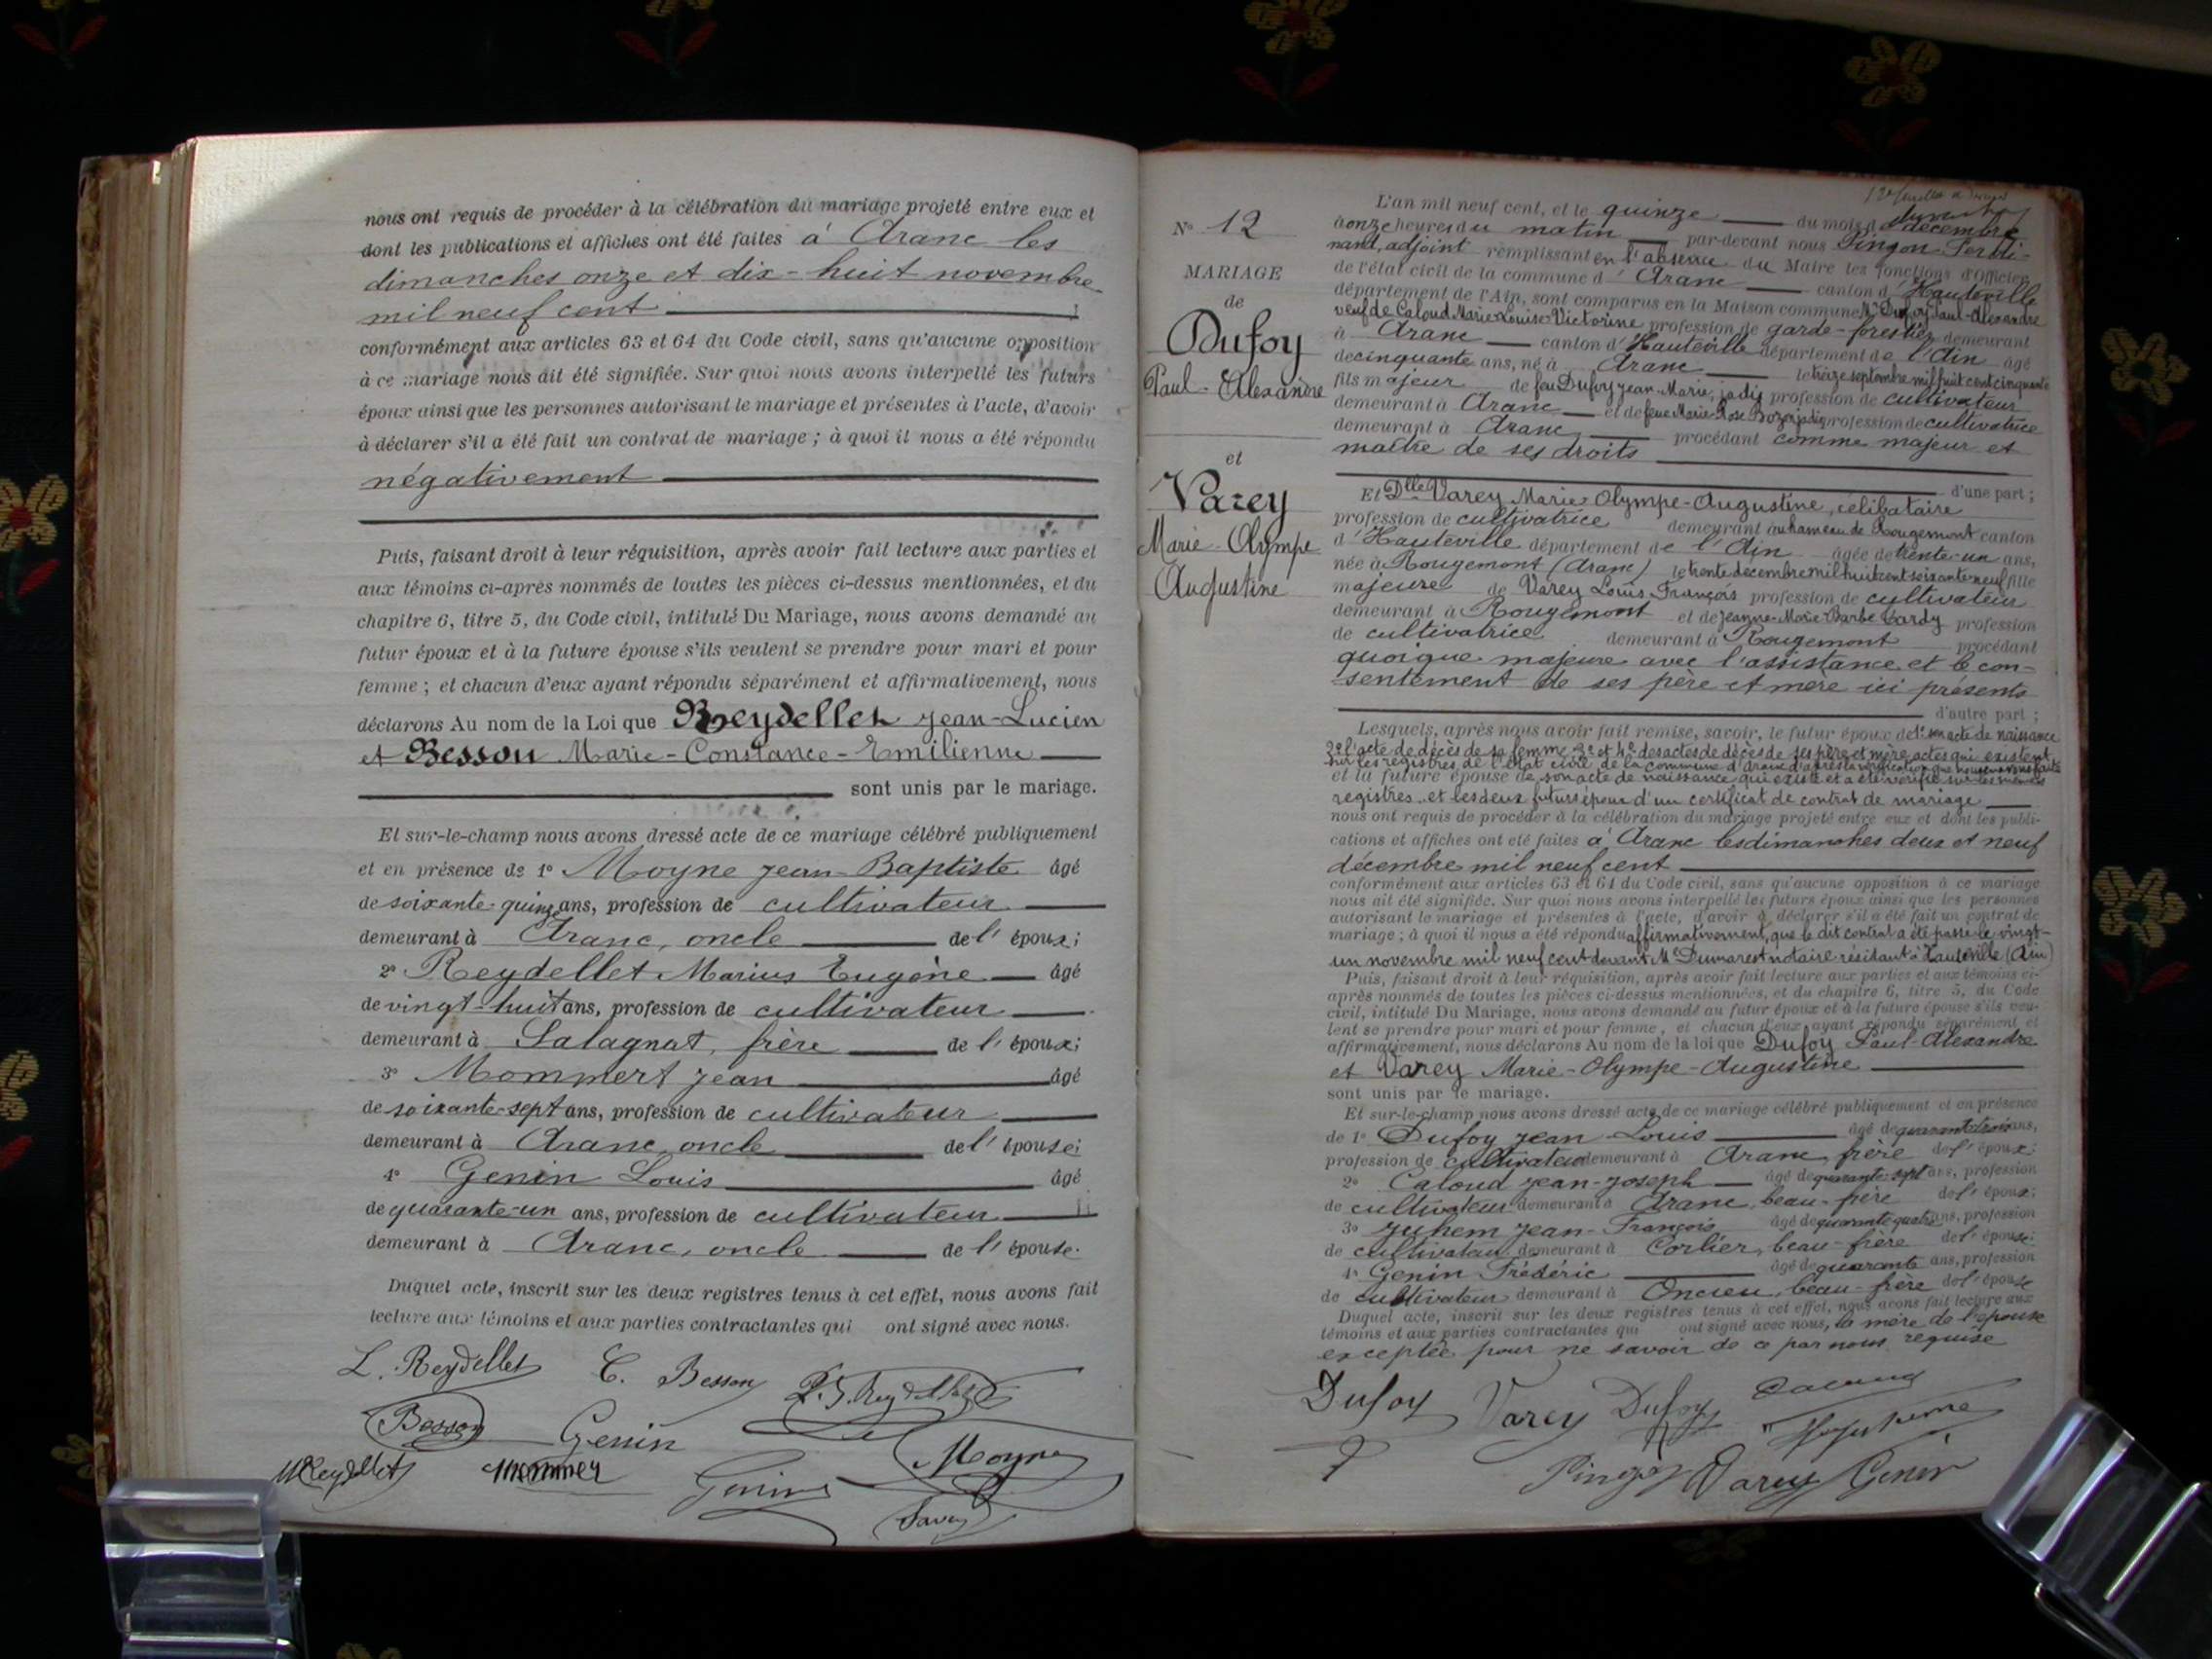 nous ont requis de procéder à la célébration du mariage projeté entre eux et
dont les publications et affiches ont été faites à Aranc les
dimanches onze et dix-huit novembre
mil neuf cent
conformément aux articles 63 et 64 du Code civil, sans qu'aucune opposition
à ce mariage nous ait été signifiée. Sur quoi nous avons interpellé les futurs
époux ainsi que les personnes autorisant le mariage et présentes à l'acte, d'avoir
à déclarer s'il a été fait un contrat de mariage ; à quoi il nous a été répondu
négativement
Puis, faisant droit à leur réquisition, après avoir fait lecture aux parties et
aux témoins ci-après nommés de toutes les pièces ci-dessus mentionnées, et du
chapitre 6, titre 5, du Code civil, intitulé Du Mariage, nous avons demandé au
futur époux et à la future épouse s'ils veulent se prendre pour mari et pour
femme ; et chacun d'eux ayant répondu séparément et affirmativement, nous
déclarons Au nom de la Loi que Reydellet Jean-Lucien
et Besson Marie-Constance-Emilienne
sont unis par le mariage.
Et sur-le-champ nous avons dressé acte de ce mariage célébré publiquement
et en présence de 1° Moyne Jean-Baptiste âgé
de soixante-quinze ans, profession de cultivateur
demeurant à Aranc, oncle de l'époux;
2° Reydellet Marius Eugène âgé
de vingt-huit ans, profession de cultivateur
demeurant à Salagnat, frère de l'époux;
3° Mommert Jean âgé
de soixante-sept ans, profession de cultivateur
demeurant à Aranc, oncle de l'épouse;
4° Genin Louis âgé
de quarante-un ans, profession de cultivateur
demeurant à Aranc, oncle de l'épouse.
Duquel acte, inscrit sur les deux registres tenus à cet effet, nous avons fait
lecture aux témoins et aux parties contractantes qui ont signé avec nous.
L. Reydellet C. Besson
Besson Genin
MReydellet Mommer Genin Moyne
Savey
N° 12
MARIAGE
de
Dufoy
Paul-Alexandre
et
Varey
Marie-Olympe
Augustine
L'an mil neuf cent, et le quinze du mois de décembre
à onze heures du matin par-devant nous Pingon Ferdi-
nand, adjoint remplissant en l'absence du Maire les fonctions d'Officier
de l'état civil de la commune d'Aranc canton d'Hauteville
département de l'Ain, sont comparus en la Maison commune Mr Dufoy Paul-Alexandre
veuf de Caloud Marie-Louise-Victorine profession de garde-forestier demeurant
à Aranc canton d'Hauteville département de l'Ain âgé
de cinquante ans, né à Aranc le treize septembre mil huit cent cinquante
fils majeur de feu Dufoy Jean-Marie, jadis profession de cultivateur
demeurant à Aranc et de feue Marie-Rose Bozon jadis profession de cultivatrice
demeurant à Aranc procédant comme majeur et
maître de ses droits
d'une part ;
Et Dlle Varey Marie-Olympe-Augustine, célibataire
profession de cultivatrice demeurant au hameau de Rougemont canton
d'Hauteville département de l'Ain âgée de trente-un ans,
née à Rougemont (Aranc) le trente décembre mil huit cent soixante-neuf fille
majeure de Varey Louis François profession de cultivateur
demeurant à Rougemont et de Jeanne-Marie-Barbe Cardy profession
de cultivatrice demeurant à Rougemont procédant
quoique majeure avec l'assistance et le con-
sentement de ses père et mère ici présents
d'autre part ;
Lesquels, après nous avoir fait remise, savoir, le futur époux de 1° son acte de naissance
2° l'acte de décès de sa femme 3° et 4° des actes de décès de ses père et mère, actes qui existent
sur les registres de l'état civil de la commune d'Aranc d'après la vérification que nous en avons faite
et la future épouse de son acte de naissance qui existe et a été vérifié sur les mêmes
registres et les deux futurs époux d'un certificat de contrat de mariage
nous ont requis de procéder à la célébration du mariage projeté entre eux et dont les publi-
cations et affiches ont été faites à Aranc les dimanches deux et neuf
décembre mil neuf cent
conformément aux articles 63 et 64 du Code civil, sans qu'aucune opposition à ce mariage
nous ait été signifiée. Sur quoi nous avons interpellé les futurs époux ainsi que les personnes
autorisant le mariage et présentes à l'acte, d'avoir à déclarer s'il a été fait un contrat de
mariage ; à quoi il nous a été répondu affirmativement, que le dit contrat a été passé le vingt-
un novembre mil neuf cent devant Me Dumarest notaire résidant à Hauteville (Ain)
Puis, faisant droit à leur réquisition, après avoir fait lecture aux parties et aux témoins ci-
après nommés de toutes les pièces ci-dessus mentionnées, et du chapitre 6, titre 5, du Code
civil, intitulé Du Mariage, nous avons demandé au futur époux et à la future épouse s'ils veu-
lent se prendre pour mari et pour femme, et chacun d'eux ayant répondu séparément et
affirmativement, nous déclarons Au nom de la loi que Dufoy Paul-Alexandre
et Varey Marie-Olympe-Augustine
sont unis par le mariage.
Et sur-le-champ nous avons dressé acte de ce mariage célébré publiquement et en présence
de 1° Dufoy Jean-Louis âgé de quarante-trois ans,
profession de cultivateur demeurant à Aranc, frère de l'époux;
2° Caloud Jean-Joseph âgé de quarante-sept ans, profession
de cultivateur demeurant à Aranc, beau-frère de l'époux;
3° Juhem Jean-François âgé de quarante quatre ans, profession
de cultivateur demeurant à Corlier, beau-frère de l'épouse;
4° Genin Frédéric âgé de quarante ans, profession
de cultivateur demeurant à Oncieu, beau-frère de l'épouse
Duquel acte, inscrit sur les deux registres tenus à cet effet, nous avons fait lecture aux
témoins et aux parties contractantes qui ont signé avec nous, la mère de l'épouse
exceptée pour ne savoir de ce par nous requise
Dufoy Varey Dufoy Caloud
Pingon Varey Genin